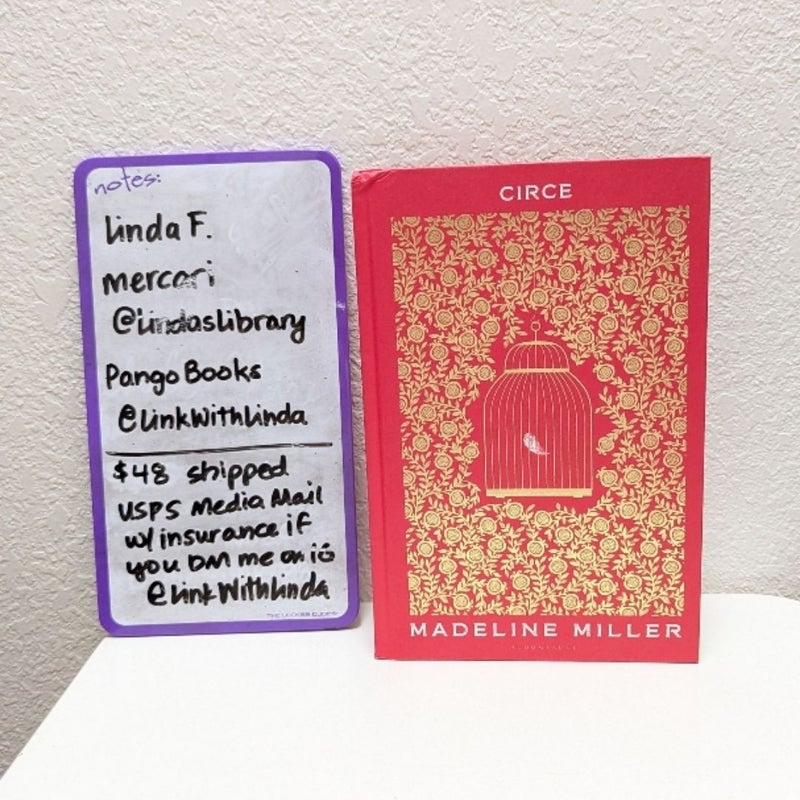 notes:
Linda F.
mercari
@lindaslibrary
Pango Books
@linkWithlinda
$48 shipped
USPS Media Mail
w/ insurance if
you DM me on iG
@linkWithlinda
CIRCE
MADELINE MILLER
BLOOMSBURY